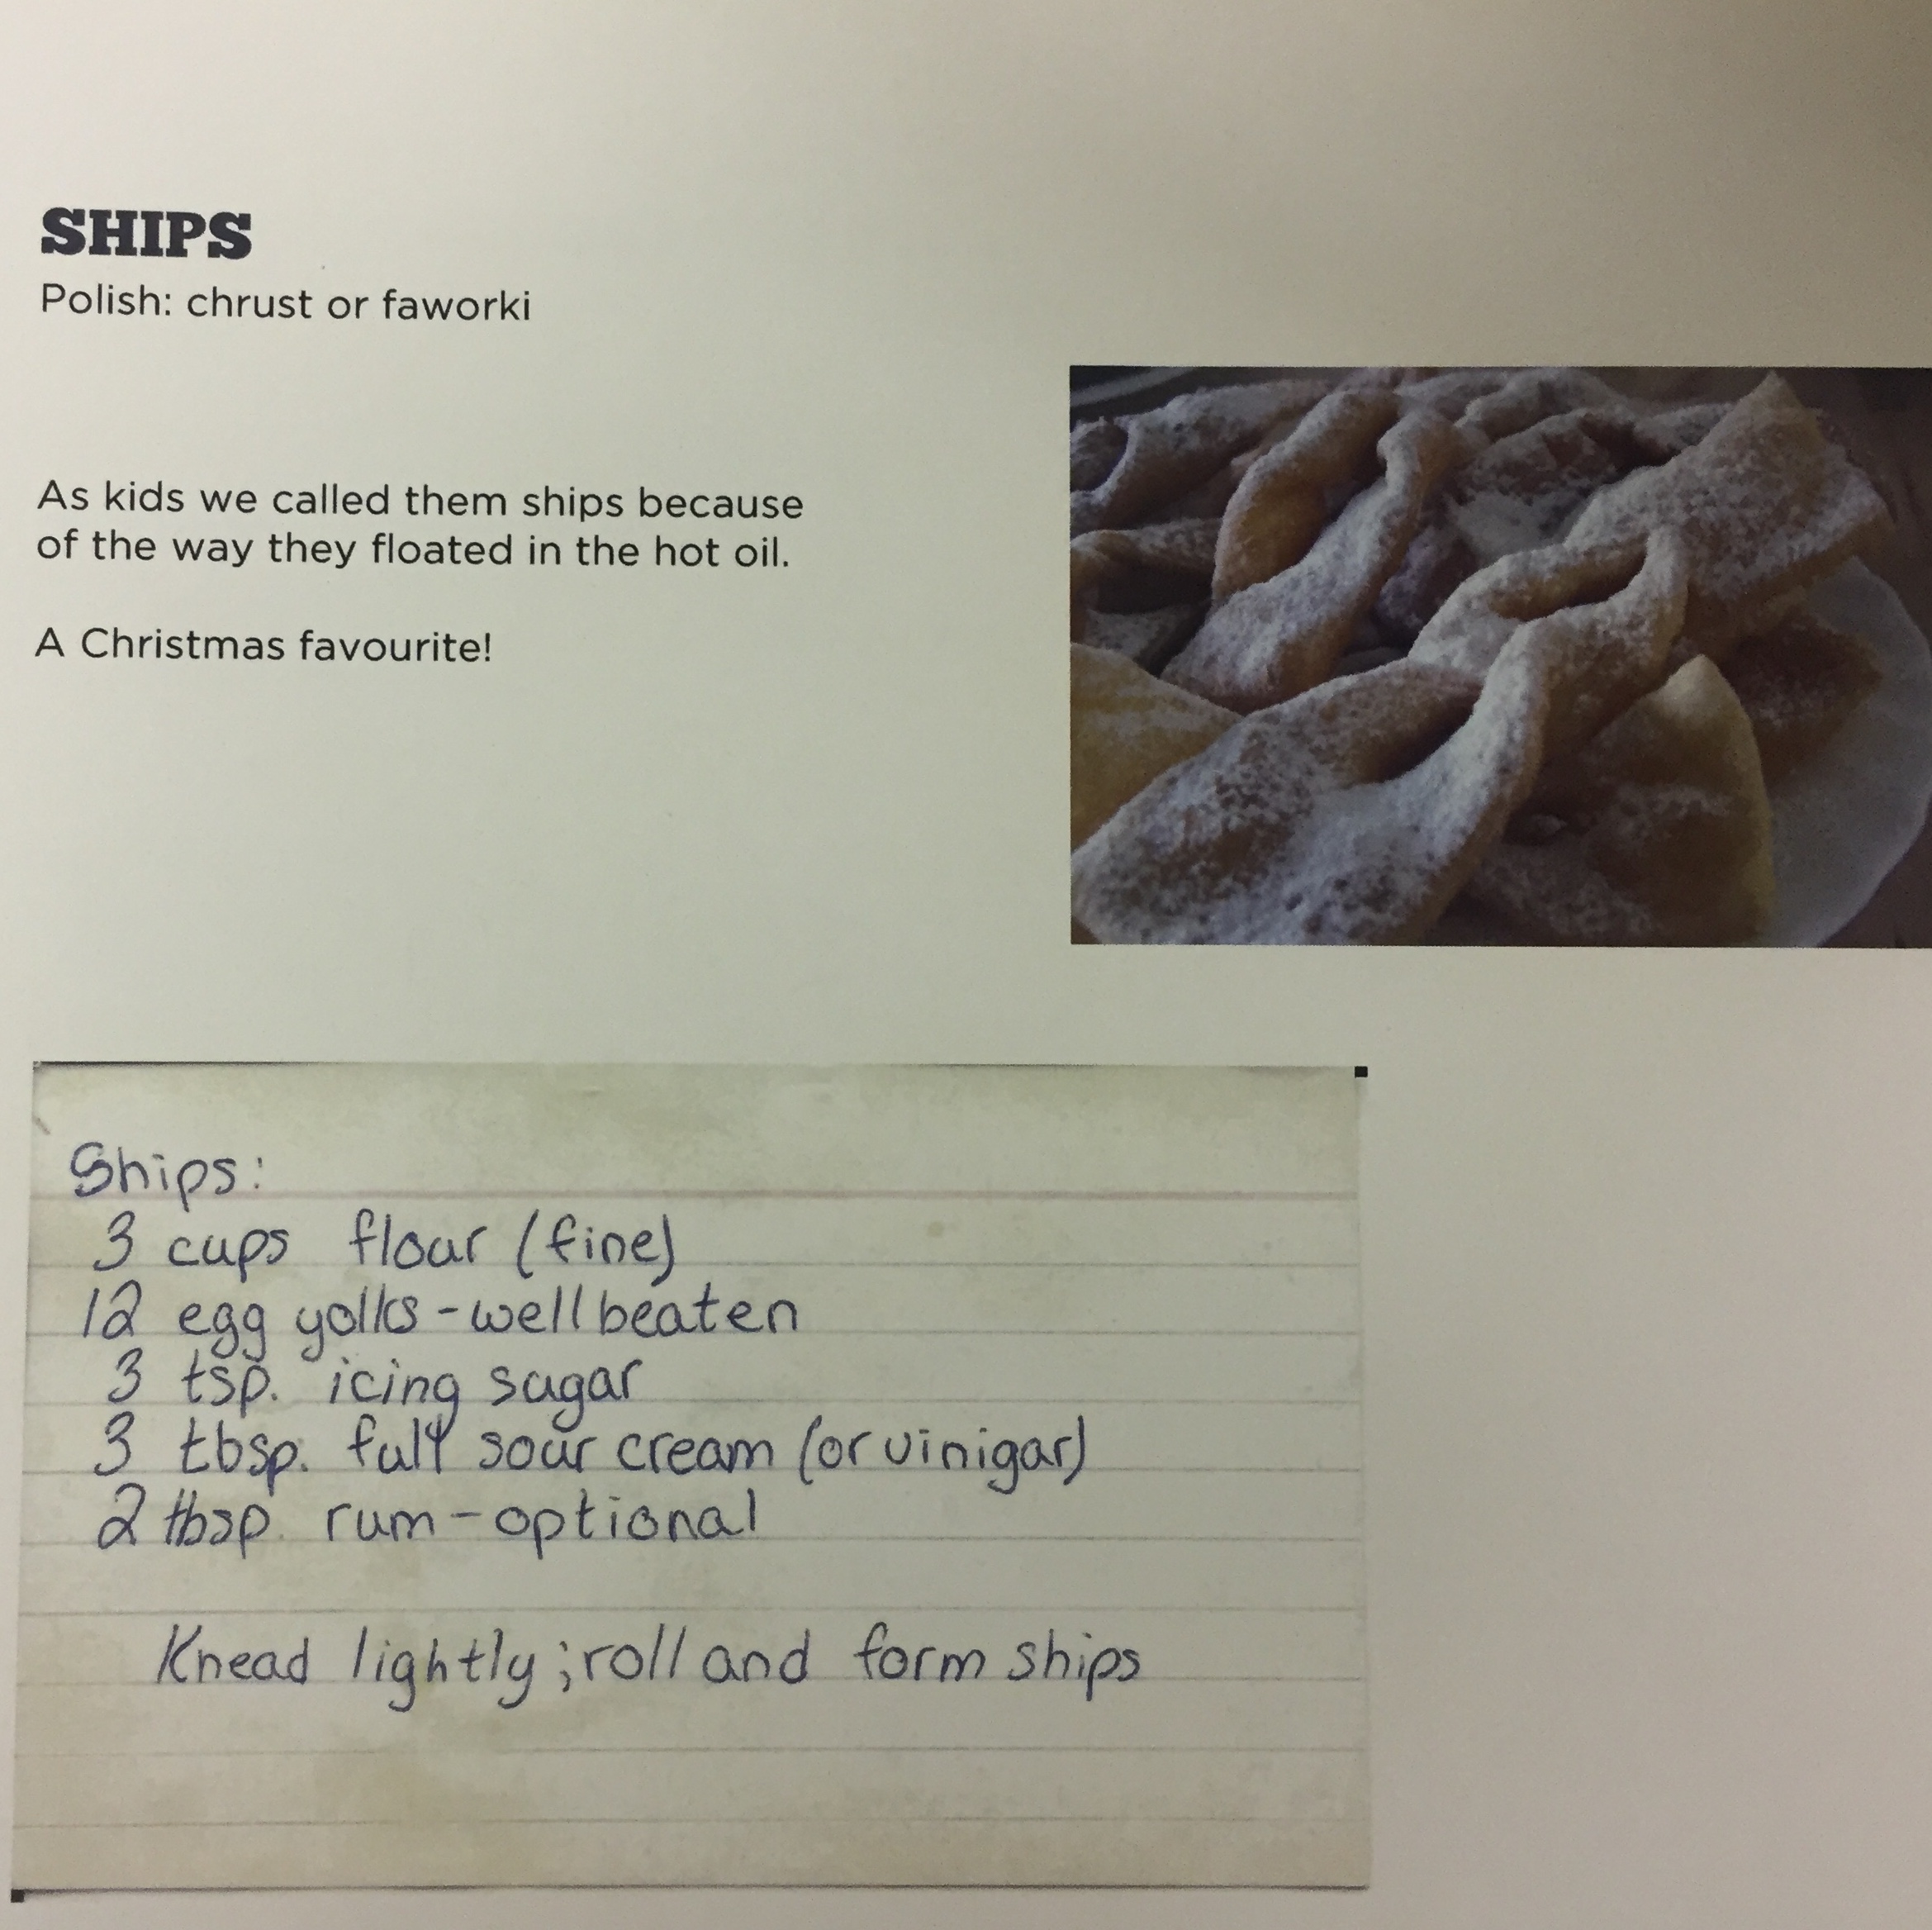 SHIPS
Polish: chrust or faworki
As kids we called them ships because
of the way they floated in the hot oil.
A Christmas favourite!
Ships:
3 cups flour (fine)
12 egg yolks - well beaten
3 tsp. icing sugar
3 tbsp. full sour cream (or vinigar)
2 tbsp. rum - optional
Knead lightly; roll and form ships